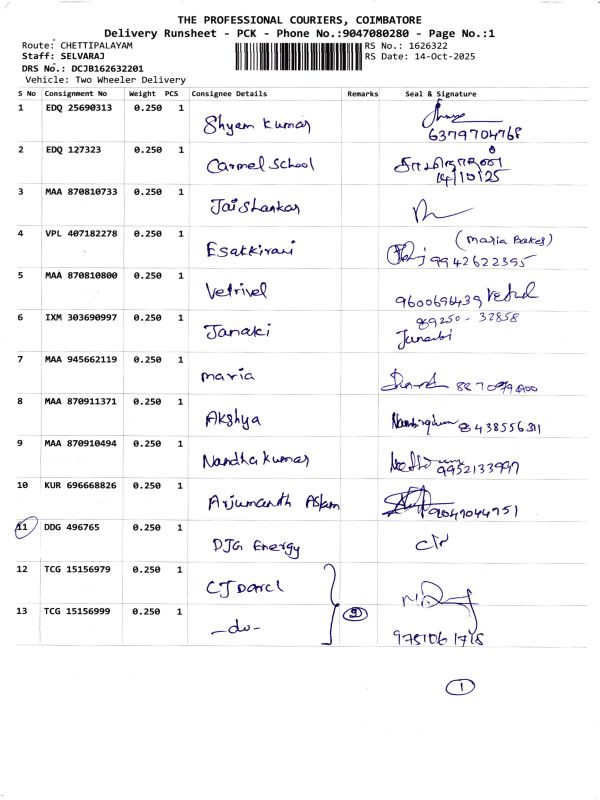 THE PROFESSIONAL COURIERS, COIMBATORE
Delivery Runsheet - PCK - Phone No.:9047080280 - Page No.:1
Route: CHETTIPALAYAM RS No.: 1626322
Staff: SELVARAJ RS Date: 14-Oct-2025
DRS No.: DCJB162632201
Vehicle: Two Wheeler Delivery
S No Consignment No Weight PCS Consignee Details Remarks Seal & Signature
1 EDQ 25690313 0.250 1 Shyam Kumar
6379704768
2 EDQ 127323 0.250 1 Carmel School
14/10/25
3 MAA 870810733 0.250 1 Jai Shankar
4 VPL 407182278 0.250 1 Esakkirani (Maria Bakes)
9942622395
5 MAA 870810800 0.250 1 Vetrivel 9600696439
6 IXM 303690997 0.250 1 Janaki 89250-32858
7 MAA 945662119 0.250 1 maria
8 MAA 870911371 0.250 1 Akshya 8438556311
9 MAA 870910494 0.250 1 Nandha Kumar 9952133997
10 KUR 696668826 0.250 1 Arjumanth Aslam 9047044751
11 DDG 496765 0.250 1 DJG Energy
12 TCG 15156979 0.250 1 CJ Darcl
13 TCG 15156999 0.250 1 -do- 2
1